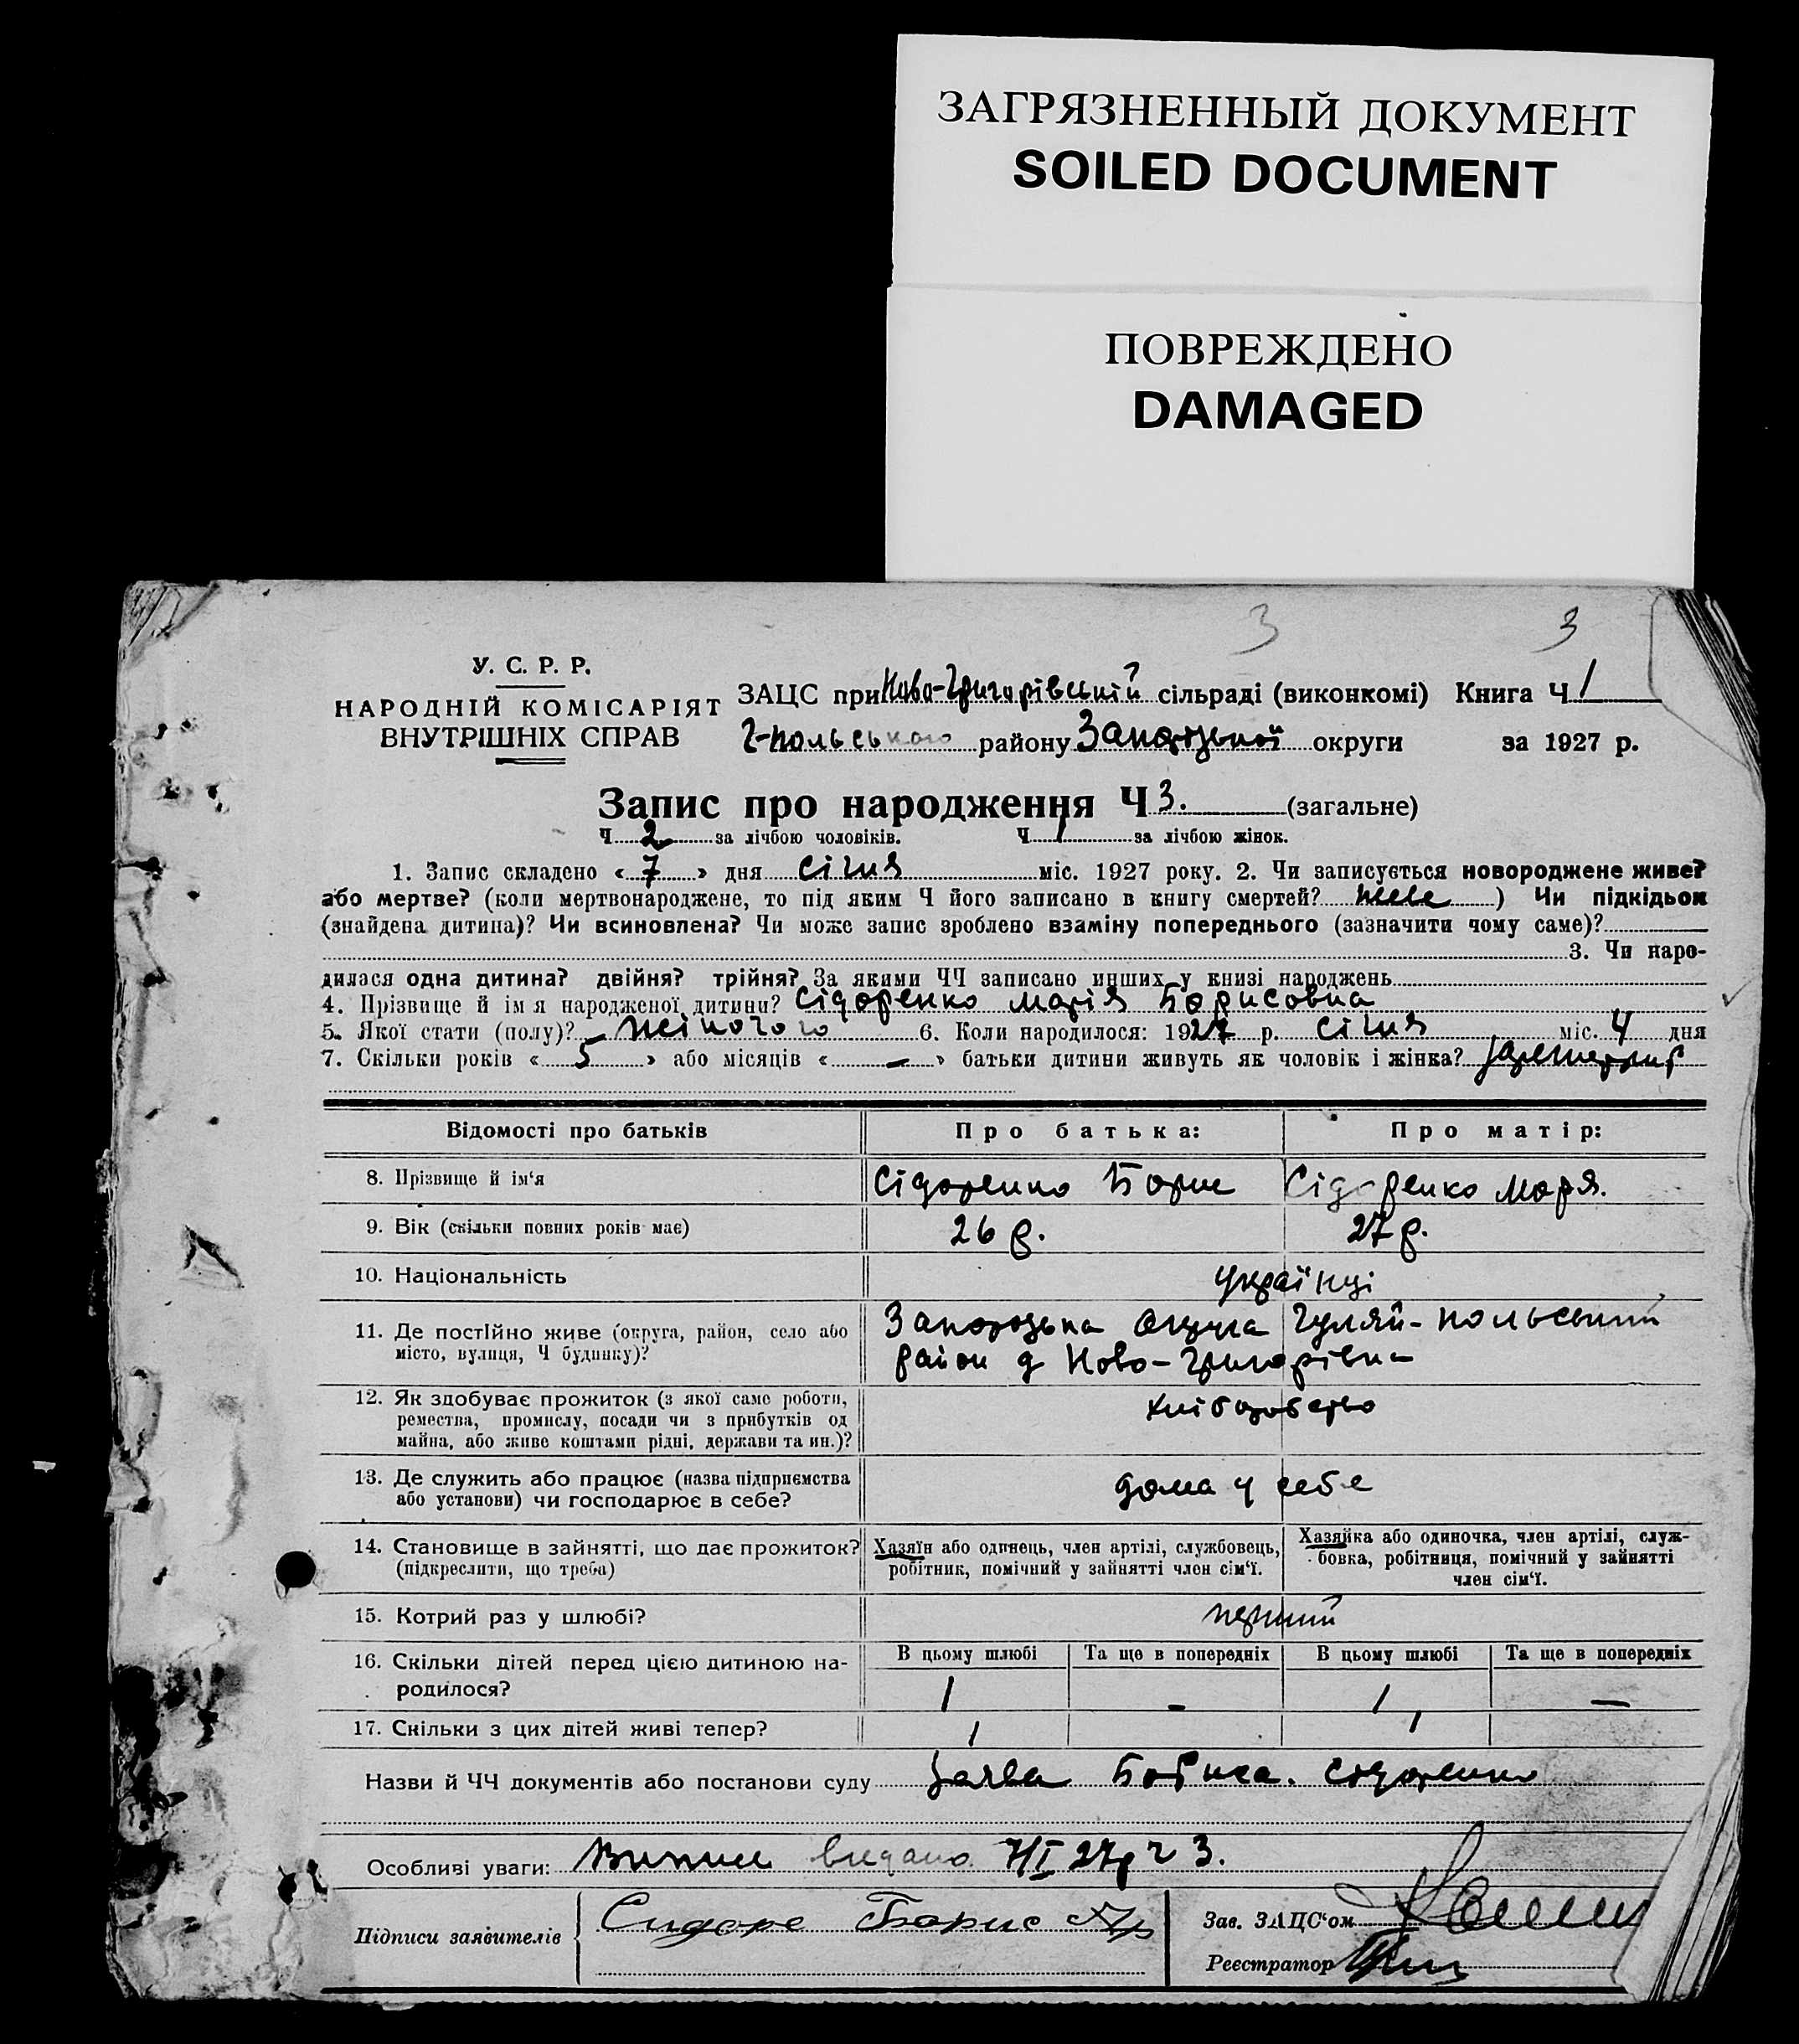 ЗАГРЯЗНЕННЫЙ ДОКУМЕНТ
SOILED DOCUMENT
ПОВРЕЖДЕНО
DAMAGED
3 3
У. С. Р. Р.
НАРОДНІЙ КОМІСАРІЯТ
ВНУТРІШНІХ СПРАВ
ЗАЦС при Ново-Григорівській сільраді (виконкомі) Книга Ч 1
Г-польського району Запорізької округи за 1927 р.
Запис про народження Ч 3. (загальне)
Ч 2 за лічбою чоловіків. Ч 1 за лічбою жінок.
1. Запис складено « 7 » дня січня міс. 1927 року. 2. Чи записується новороджене живе?
або мертве? (коли мертвонароджене, то під яким Ч його записано в книгу смертей? живе ) Чи підкідьок
(знайдена дитина)? Чи всиновлена? Чи може запис зроблено взаміну попереднього (зазначити чому саме)?
3. Чи наро-
дилася одна дитина? двійня? трійня? За якими ЧЧ записано инших у книзі народжень
4. Прізвище й ім я народженої дитини? Сідоренко Марія Борисовна
5. Якої стати (полу)? жіночого 6. Коли народилося: 1927 р. січня міс. 4 дня
7. Скільки років « 5 » або місяців « — » батьки дитини живуть як чоловік і жінка?
Відомості про батьків Про батька: Про матір:
8. Прізвище й ім'я Сідоренко Борис Сідоренко Марія.
9. Вік (скільки повних років має) 26 р. 27 р.
10. Національність українці
11. Де постІйно живе (округа, район, село або
місто, вулиця, Ч будинку)?
Запорізька округа Гуляй-польський
район д Ново-Григорівка
12. Як здобуває прожиток (з якої саме роботи,
ремества, промислу, посади чи з прибутків од
майна, або живе коштами рідні, держави та ин.)?
хліборобство
13. Де служить або працює (назва підприємства
або установи) чи господарює в себе?
дома у себе
14. Становище в зайнятті, що дає прожиток?
(підкреслити, що треба)
Хазяїн або одинець, член артілі, службовець,
робітник, помічний у зайнятті член сім'ї.
Хазяйка або одиночка, член артілі, служ-
бовка, робітниця, помічний у зайнятті
член сім'ї.
15. Котрий раз у шлюбі? перший
16. Скільки дітей перед цією дитиною на-
родилося?
В цьому шлюбі Та ще в попередніх В цьому шлюбі Та ще в попередніх
1 — 1 —
17. Скільки з цих дітей живі тепер? 1 1
Назви й ЧЧ документів або постанови суду Заява Бориса. Сідоренко
Особливі уваги: Випис видано 7/I 27р Ч 3.
Підписи заявителів Сидоре Борис
Зав. ЗАЦС'ом
Реєстратор